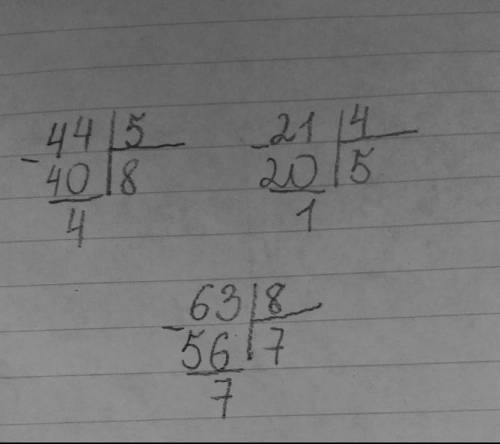 -44|5
40|8
4
-21|4
20|5
1
-63|8
56|7
7